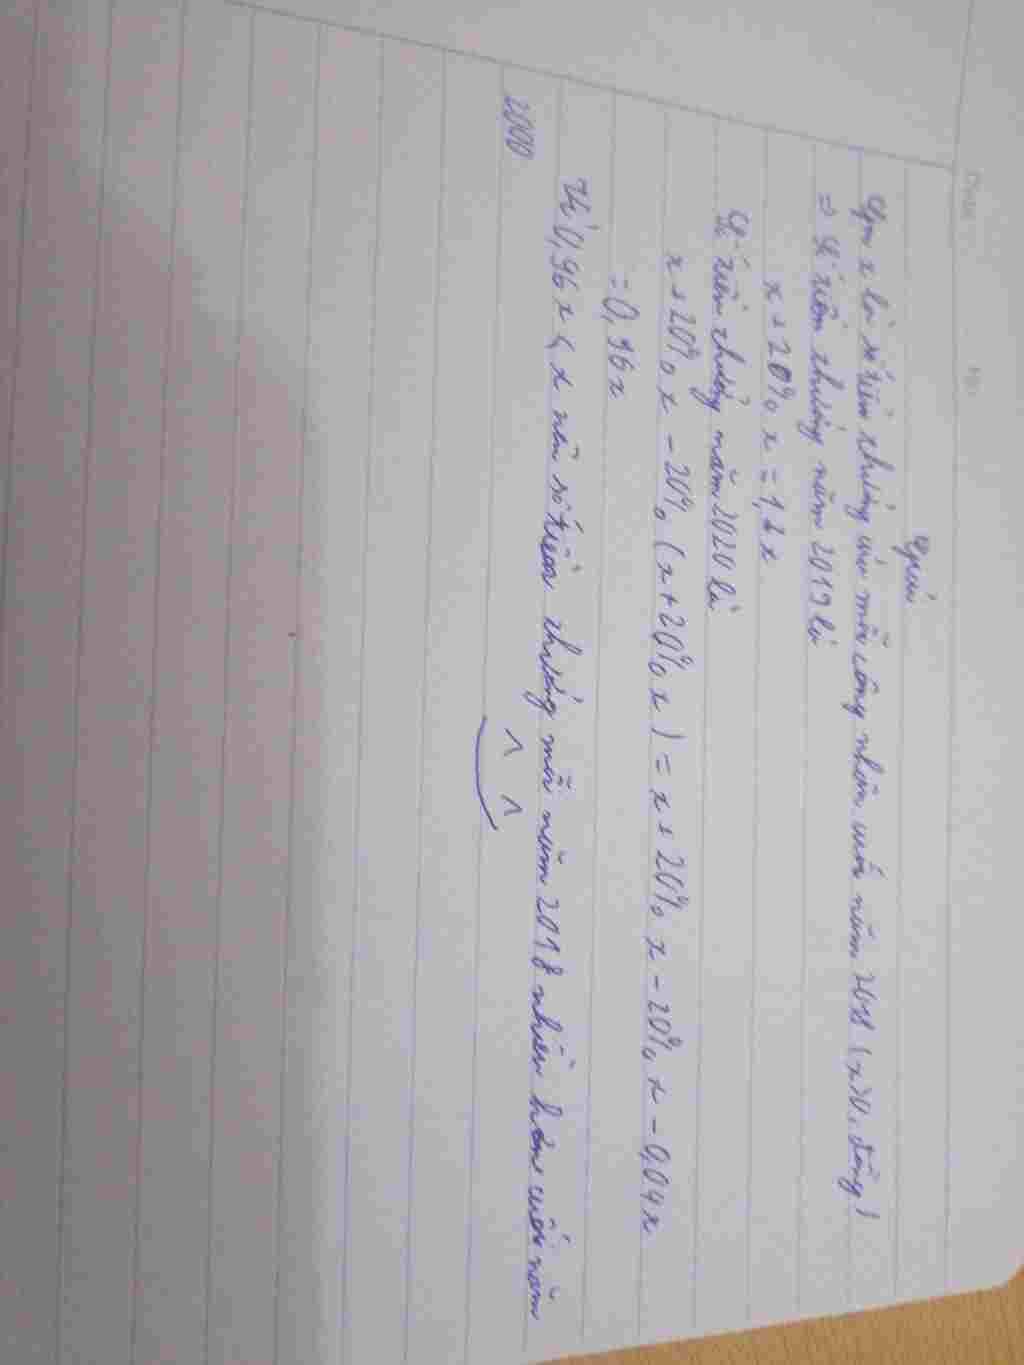 Giải
Gọi x là số tiền thưởng của mỗi công nhân cuối năm 2018 (x>0, đồng)
⇒ Số tiền thưởng năm 2019 là
x + 20% x = 1,2 x
Số tiền thưởng năm 2020 là
x + 20% x - 20% (x + 20% x) = x + 20% x - 20% x - 0,04 x
= 0,96 x
Vì 0,96 x < x nên số tiền thưởng mỗi năm 2018 nhiều hơn cuối năm
2000
^ ^